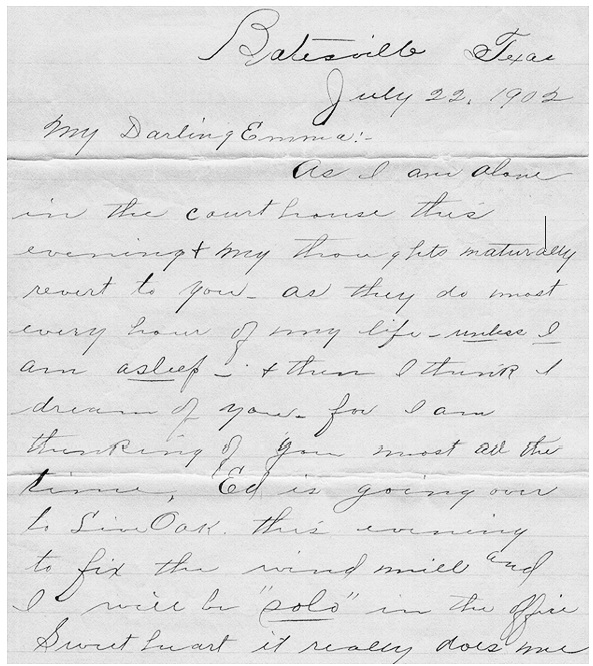 Batesville Texas
July 22, 1902
My Darling Emma:-
As I am alone
in the court house this
evening + my thoughts naturally
revert to you - as they do most
every hour of my life - unless I
am asleep - + then I think I
dream of you - for I am
thinking of you most all the
time, Ed is going over
to Live Oak. this evening
to fix the wind mill and
I will be "solo" in the office
Sweet heart it really does me